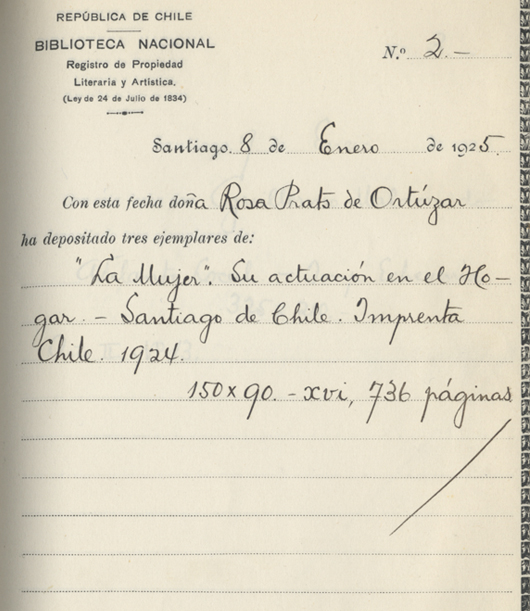 REPÚBLICA DE CHILE
BIBLIOTECA NACIONAL
Registro de Propiedad
Literaria y Artística.
(Ley de 24 de Julio de 1834)
N.º 2.-
Santiago 8 de Enero de 1925.
Con esta fecha doña Rosa Prats de Ortúzar
ha depositado tres ejemplares de:
"La Mujer". Su actuación en el Ho-
gar. - Santiago de Chile. Imprenta
Chile. 1924.
150 x 90. - xvi, 736 páginas